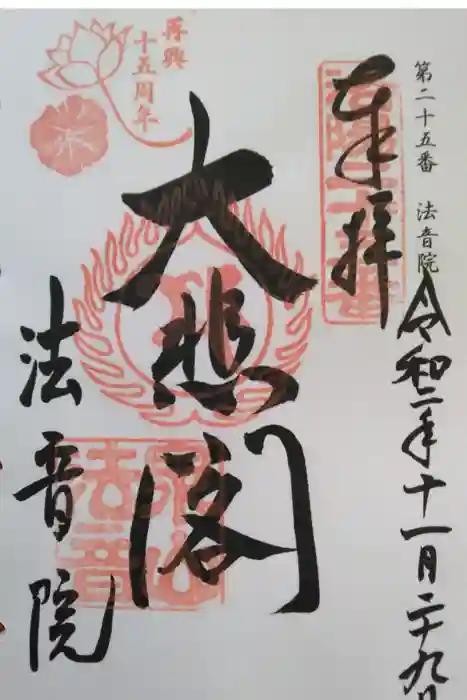 第二十五番 法音院
令和二年十一月二十九日
奉拝
大悲閣
法音院
再興
十五周年